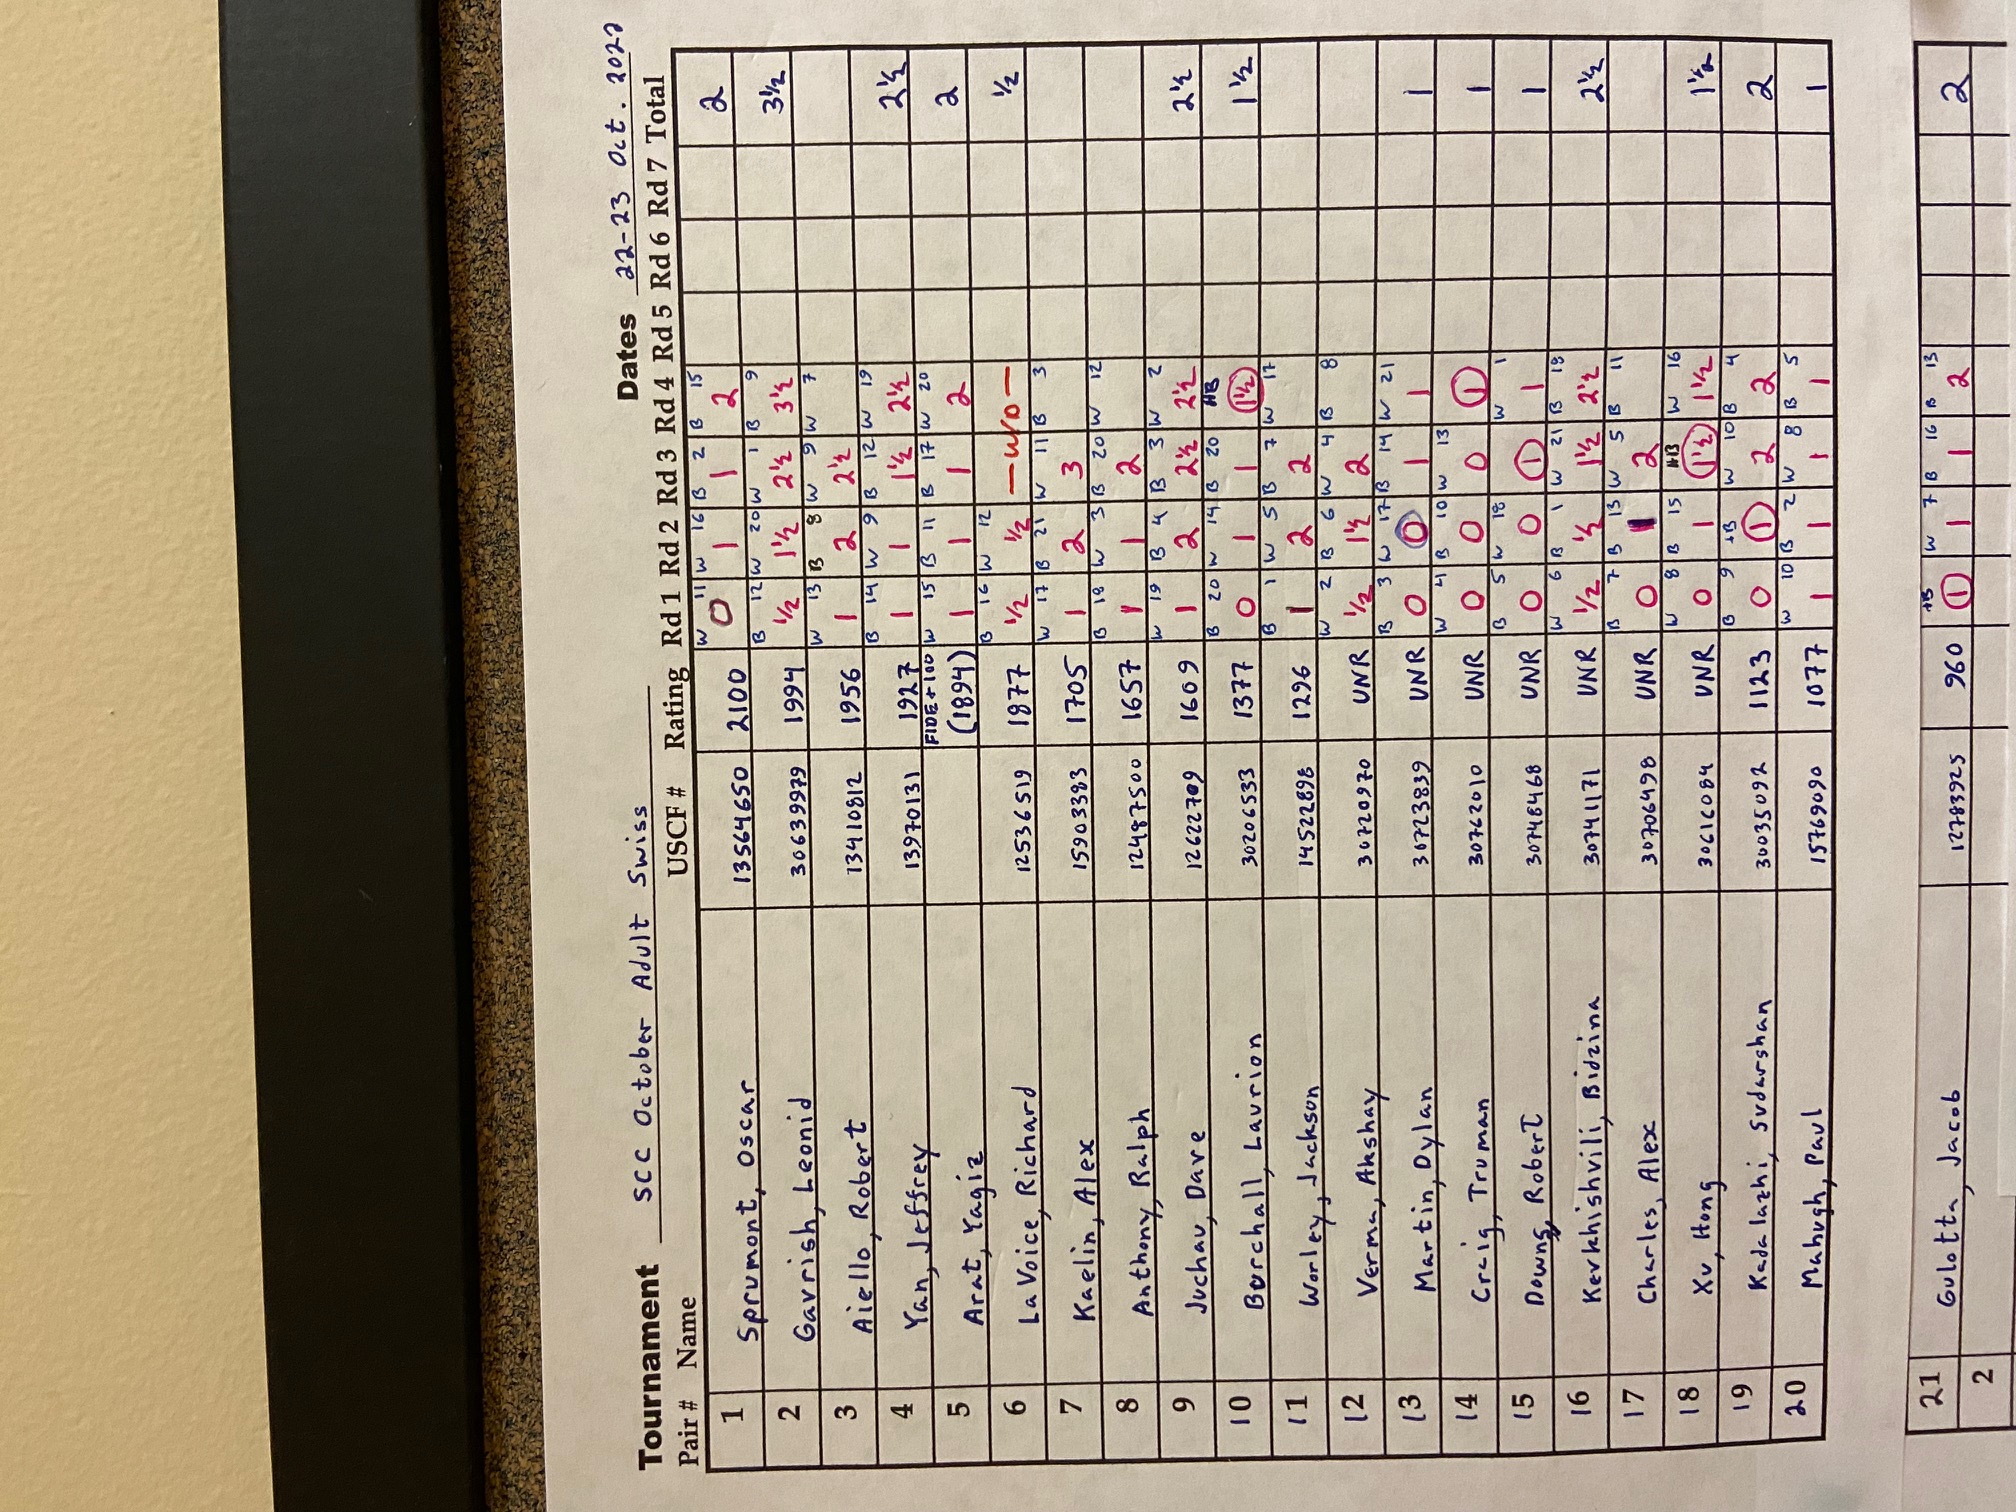 Tournament SCC October Adult Swiss Dates 22-23 Oct. 2022
Pair # Name USCF # Rating Rd 1 Rd 2 Rd 3 Rd 4 Rd 5 Rd 6 Rd 7 Total
1 Sprumont, Oscar 13564650 2100 W 11 0 W 16 1 B 2 1 B 15 2 2
2 Gavrish, Leonid 30639979 1994 B 12 ½ W 20 1½ W 1 2½ B 9 3½ 3½
3 Aiello, Robert 13410812 1956 W 13 1 B 8 2 W 9 2½ W 7
4 Yan, Jeffrey 13970131 1927 B 14 1 W 9 1 B 12 1½ W 19 2½ 2½
5 Arat, Yagiz FIDE+100 (1894) W 15 1 B 11 1 B 17 1 W 20 2 2
6 LaVoice, Richard 12536519 1877 B 16 ½ W 12 ½ — W/D — ½
7 Kaelin, Alex 15903383 1705 W 17 1 B 21 2 W 11 3 B 3
8 Anthony, Ralph 12487500 1657 B 18 1 W 3 1 B 20 2 W 12
9 Juchau, Dave 12622709 1609 W 19 1 B 4 2 B 3 2½ W 2 2½ 2½
10 Burchall, Laurion 30206533 1377 B 20 0 W 14 1 B 20 1 HB 1½ 1½
11 Worley, Jackson 14522898 1296 B 1 1 W 5 2 B 7 2 W 17
12 Verma, Akshay 30720970 UNR W 2 ½ B 6 1½ W 4 2 B 8
13 Martin, Dylan 30723839 UNR B 3 0 W 17 0 B 14 1 W 21 1 1
14 Craig, Truman 30762010 UNR W 4 0 B 10 0 W 13 0 1 1
15 Downs, Robert 30748468 UNR B 5 0 W 18 0 1 W 1 1 1
16 Kevkhishvili, Bidzina 30741171 UNR W 6 ½ B 1 ½ W 21 1½ B 18 2½ 2½
17 Charles, Alex 30706498 UNR B 7 0 B 13 1 W 5 2 B 11
18 Xu, Hong 30616084 UNR W 8 0 B 15 1 HB 1½ W 16 1½ 1½
19 Kadalazhi, Sudarshan 30035092 1123 B 9 0 +B 1 W 10 2 B 4 2 2
20 Mahugh, Paul 15769090 1077 W 10 1 B 2 1 W 8 1 B 5 1 1
21 Gulotta, Jacob 12783925 960 +B 1 W 7 1 B 16 1 B 13 2 2
2